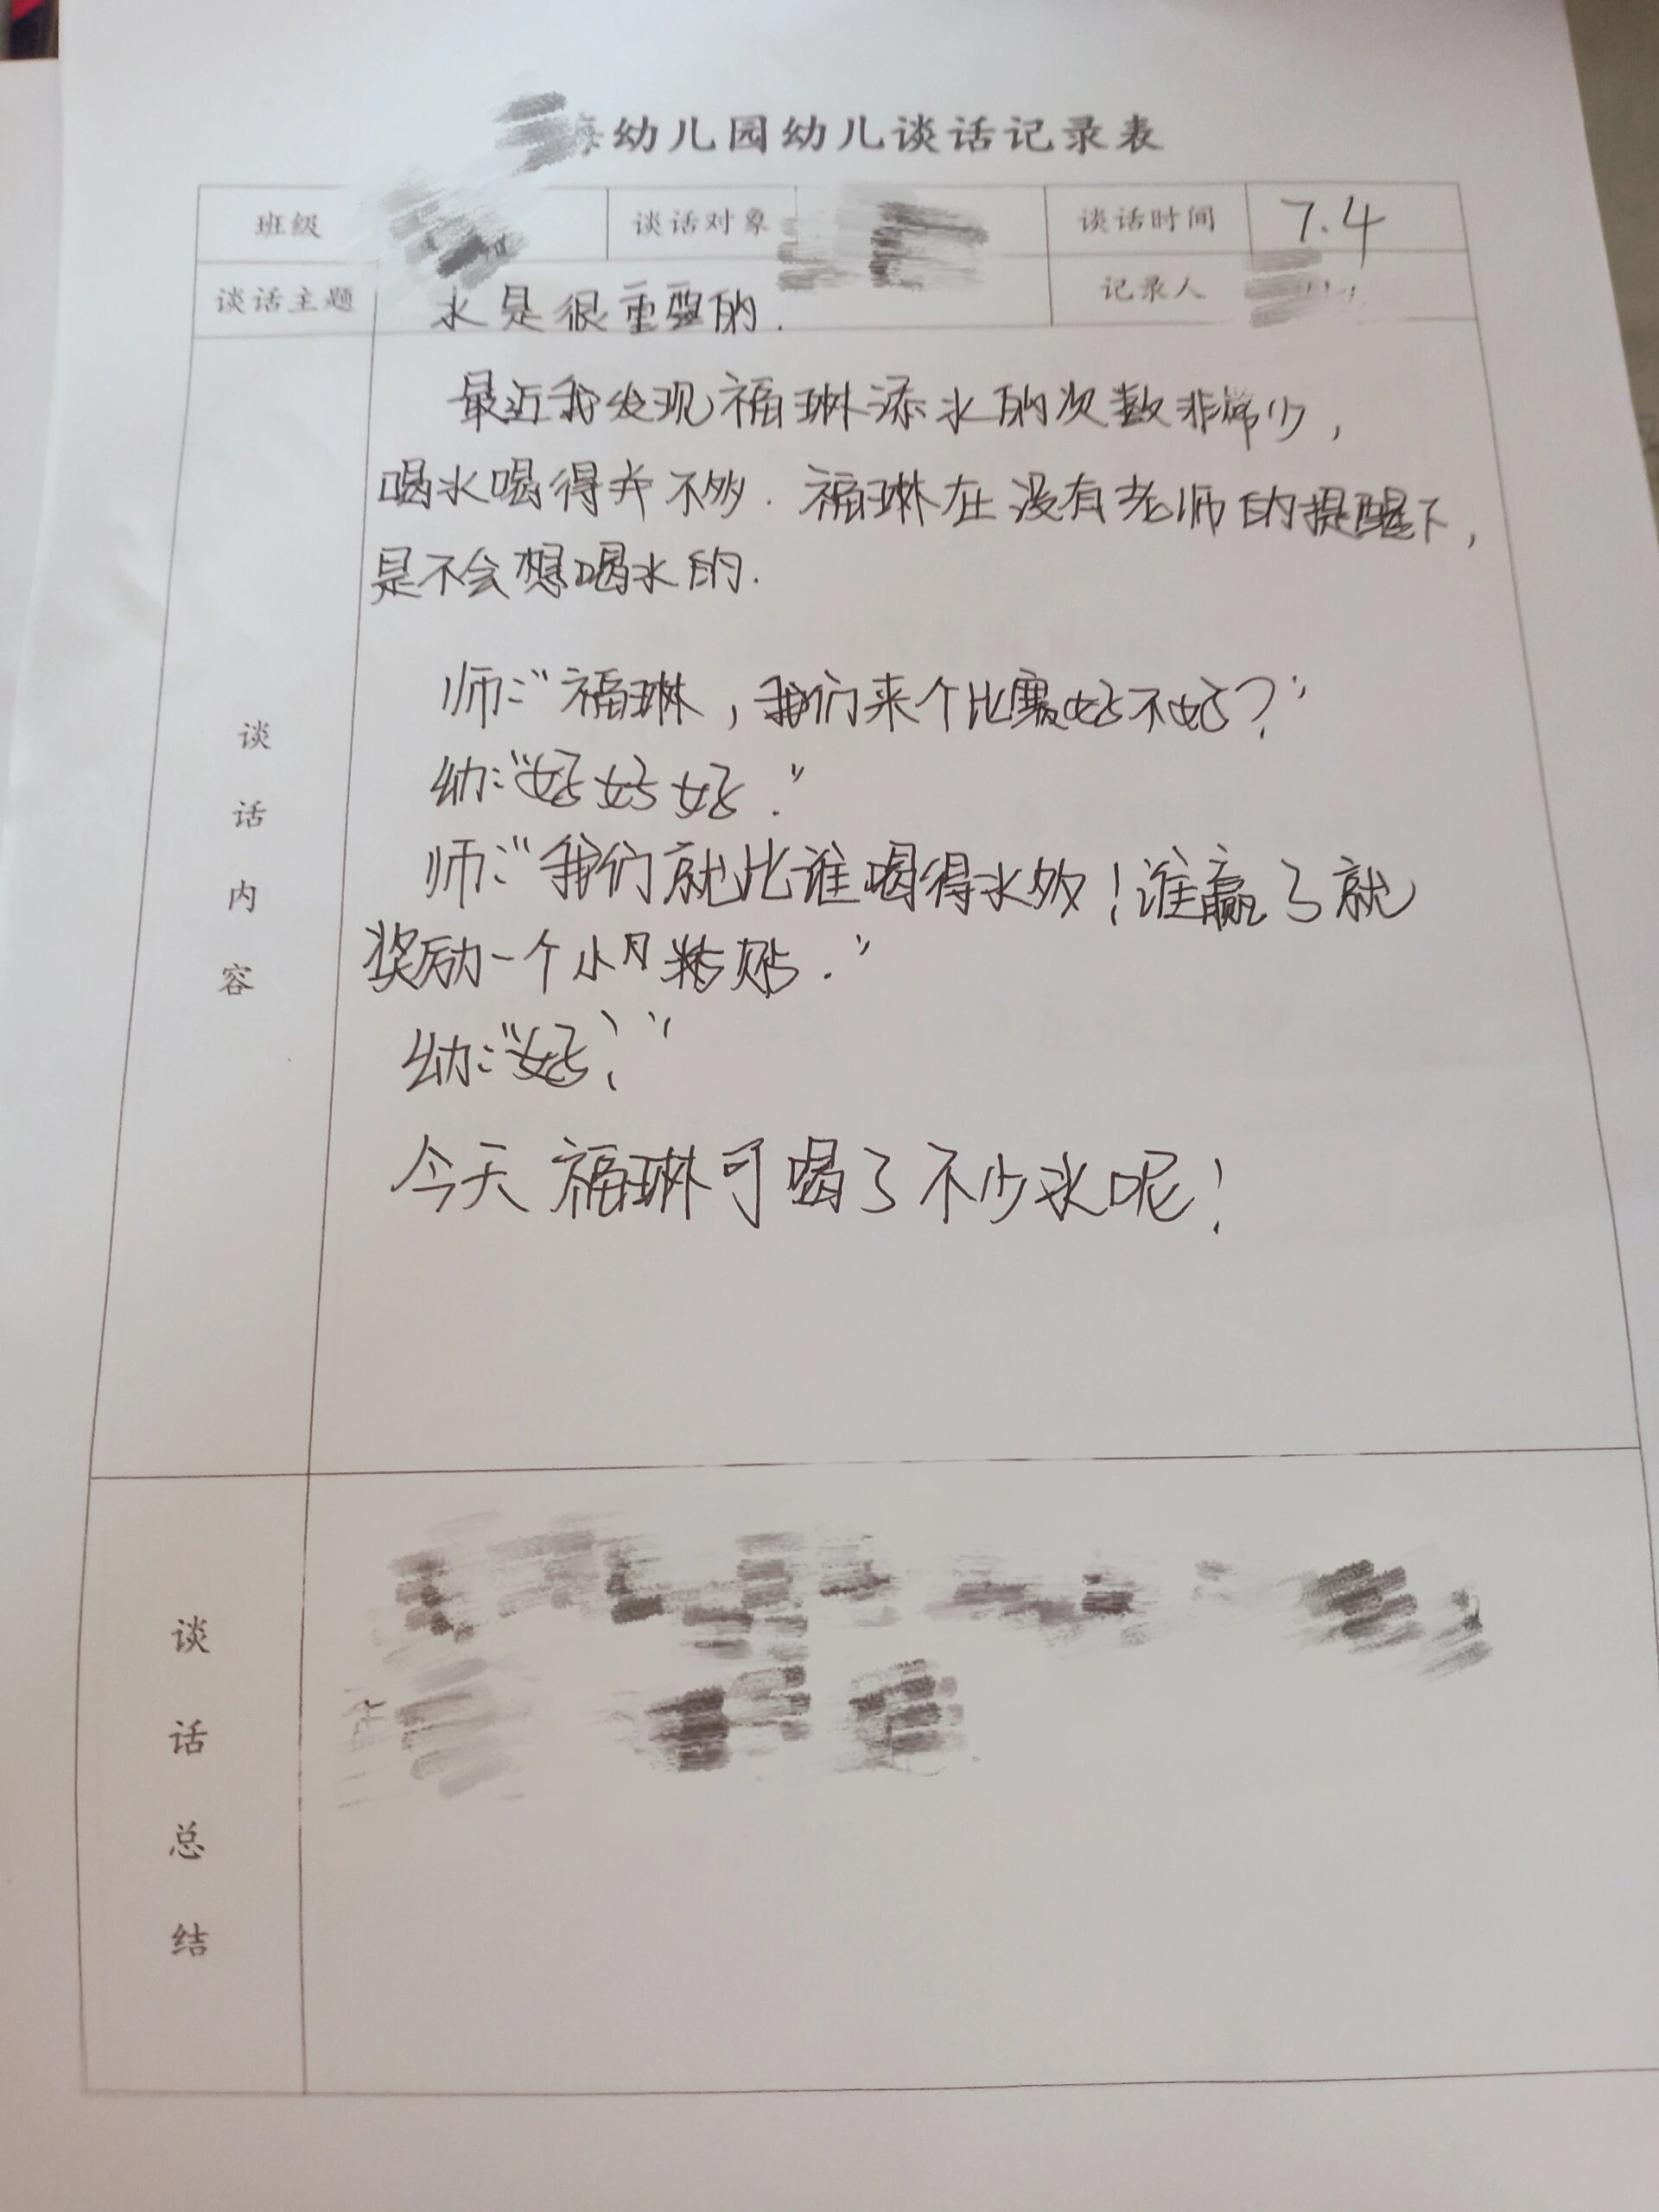 幼儿园幼儿谈话记录表
班级 谈话对象 谈话时间 7.4
谈话主题 水是很重要的. 记录人
谈话内容
最近我发现福琳添水的次数非常少,
喝水喝得并不多.福琳在没有老师的提醒下,
是不会想喝水的.
师:“福琳,我们来个比赛好不好?”
幼:“好好好.”
师:“我们就比谁喝得水多!谁赢了就
奖励一个小月粘贴.”
幼:“好!”
今天福琳可喝了不少水呢!
谈话总结